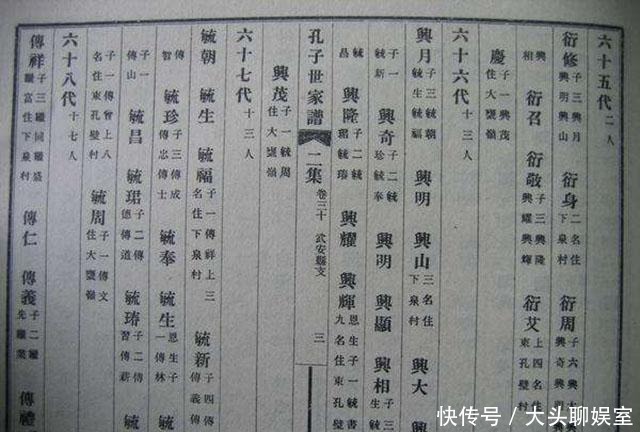 六十五代 二人
衍修 子三興月 興明興山 衍身 二名住 下泉村 衍周 子六興大 興奇興明
興 相 衍召 衍敬 子三興隆 興耀興輝 衍艾 上四名住 東孔壁村
慶 子一興茂 住大甕嶺
六十六代 十三人
興月 子三毓朝 毓生毓福 興明 興山 三名住 下泉村 興大 興
子一 毓新 興奇 子二毓 珍毓奉 興明 興顯 興相 生毓
毓 昌 興隆 子二毓 珺毓 興耀 興輝 恩生子一毓書 九名住東孔壁
孔子世家譜 二集 卷三十 武安縣支 三
興茂 子一毓周 住大甕嶺
六十七代 十三人
毓朝 毓生 毓福 子一傳祥上三 名住下泉村 毓新 子四傳 傳義傳
傳 智 毓珍 子三傳成 傳忠傳士 毓奉 毓生 恩生子 一傳林
子一 傳山 毓昌 毓珺 子二傳 德傳道 子二傳 習傳薪 毓
子一傳曾上八 名住東孔壁村 毓周 子一傳文 住大甕嶺
六十八代 十七人
傳祥 子三繼同繼盛 繼富住下泉村 傳仁 傳義 子二繼 先繼業 傳禮
快传号／大头聊娱室